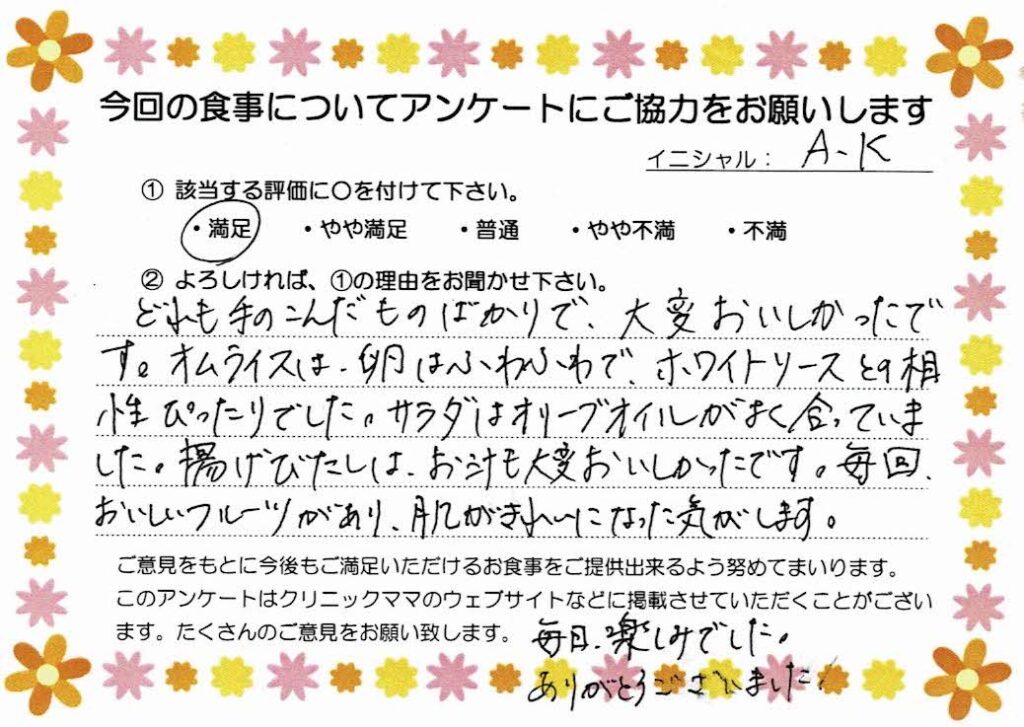 今回の食事についてアンケートにご協力をお願いします
イニシャル： A-K
① 該当する評価に〇を付けて下さい。
・満足 ・やや満足 ・普通 ・やや不満 ・不満
② よろしければ、①の理由をお聞かせ下さい。
どれも手のこんだものばかりで、大変おいしかったで
す。オムライスは、卵はふわふわで、ホワイトソースとの相
性ぴったりでした。サラダはオリーブオイルがよく合っていま
した。揚げびたしは、お汁も大変おいしかったです。毎回、
おいしいフルーツがあり、肌がきれいになった気がします。
ご意見をもとに今後もご満足いただけるお食事をご提供出来るよう努めてまいります。
このアンケートはクリニックママのウェブサイトなどに掲載させていただくことがござい
ます。たくさんのご意見をお願い致します。
毎日、楽しみでした。
ありがとうございました！